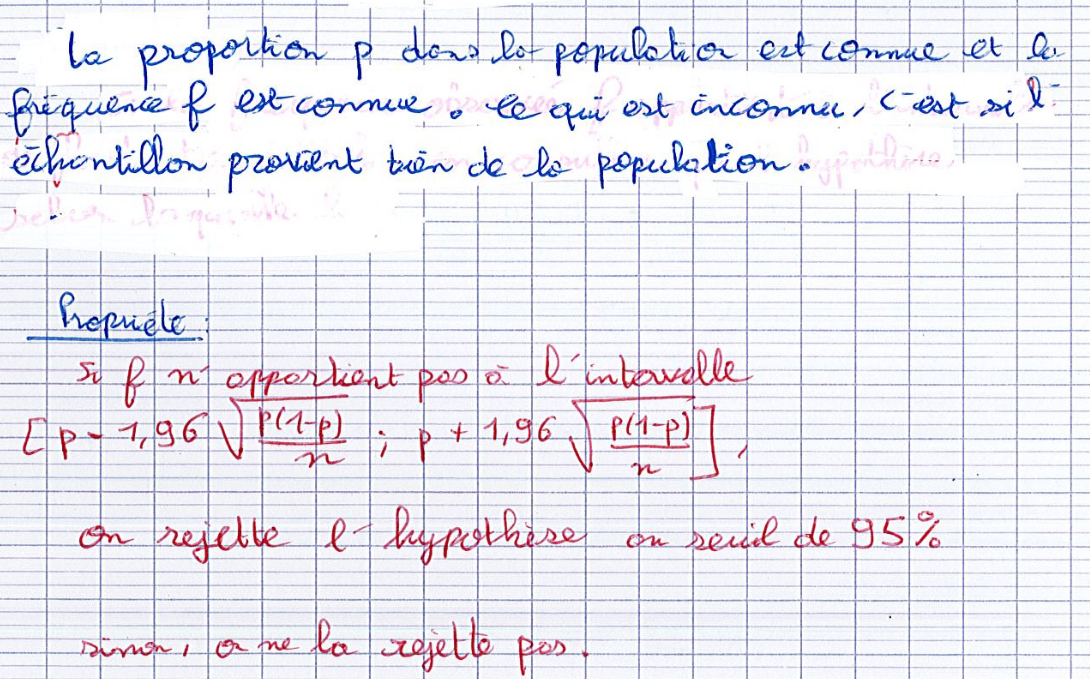 la proportion p dans la population est connue et la
fréquence f est connue. Ce qui est inconnu, c'est si l'
échantillon provient bien de la population.
Propriété :
Si f n'appartient pas à l'intervalle
[p - 1,96 √(p(1-p)/n) ; p + 1,96 √(p(1-p)/n)],
on rejette l'hypothèse au seuil de 95%
sinon, on ne la rejette pas.